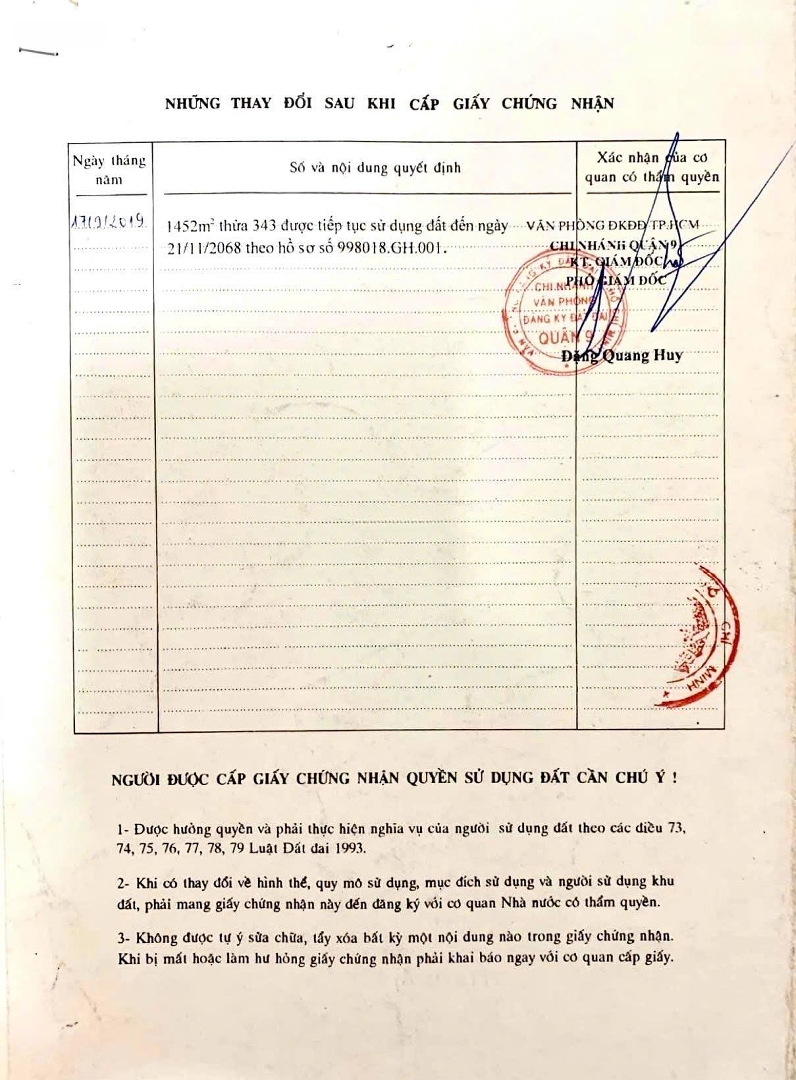 NHỮNG THAY ĐỔI SAU KHI CẤP GIẤY CHỨNG NHẬN
Ngày tháng năm
Số và nội dung quyết định
Xác nhận của cơ quan có thẩm quyền
17/9/2019
1452m² thửa 343 được tiếp tục sử dụng đất đến ngày
21/11/2068 theo hồ sơ số 998018.GH.001.
VĂN PHÒNG ĐKĐĐ TP.HCM
CHI NHÁNH QUẬN 9
KT. GIÁM ĐỐC
PHÓ GIÁM ĐỐC
CHI NHÁNH
VĂN PHÒNG
ĐĂNG KÝ ĐẤT ĐAI
QUẬN 9
Đặng Quang Huy
CHÍ MINH
NGƯỜI ĐƯỢC CẤP GIẤY CHỨNG NHẬN QUYỀN SỬ DỤNG ĐẤT CẦN CHÚ Ý !
1- Được hưởng quyền và phải thực hiện nghĩa vụ của người sử dụng đất theo các điều 73,
74, 75, 76, 77, 78, 79 Luật Đất đai 1993.
2- Khi có thay đổi về hình thể, quy mô sử dụng, mục đích sử dụng và người sử dụng khu
đất, phải mang giấy chứng nhận này đến đăng ký với cơ quan Nhà nước có thẩm quyền.
3- Không được tự ý sửa chữa, tẩy xóa bất kỳ một nội dung nào trong giấy chứng nhận.
Khi bị mất hoặc làm hư hỏng giấy chứng nhận phải khai báo ngay với cơ quan cấp giấy.